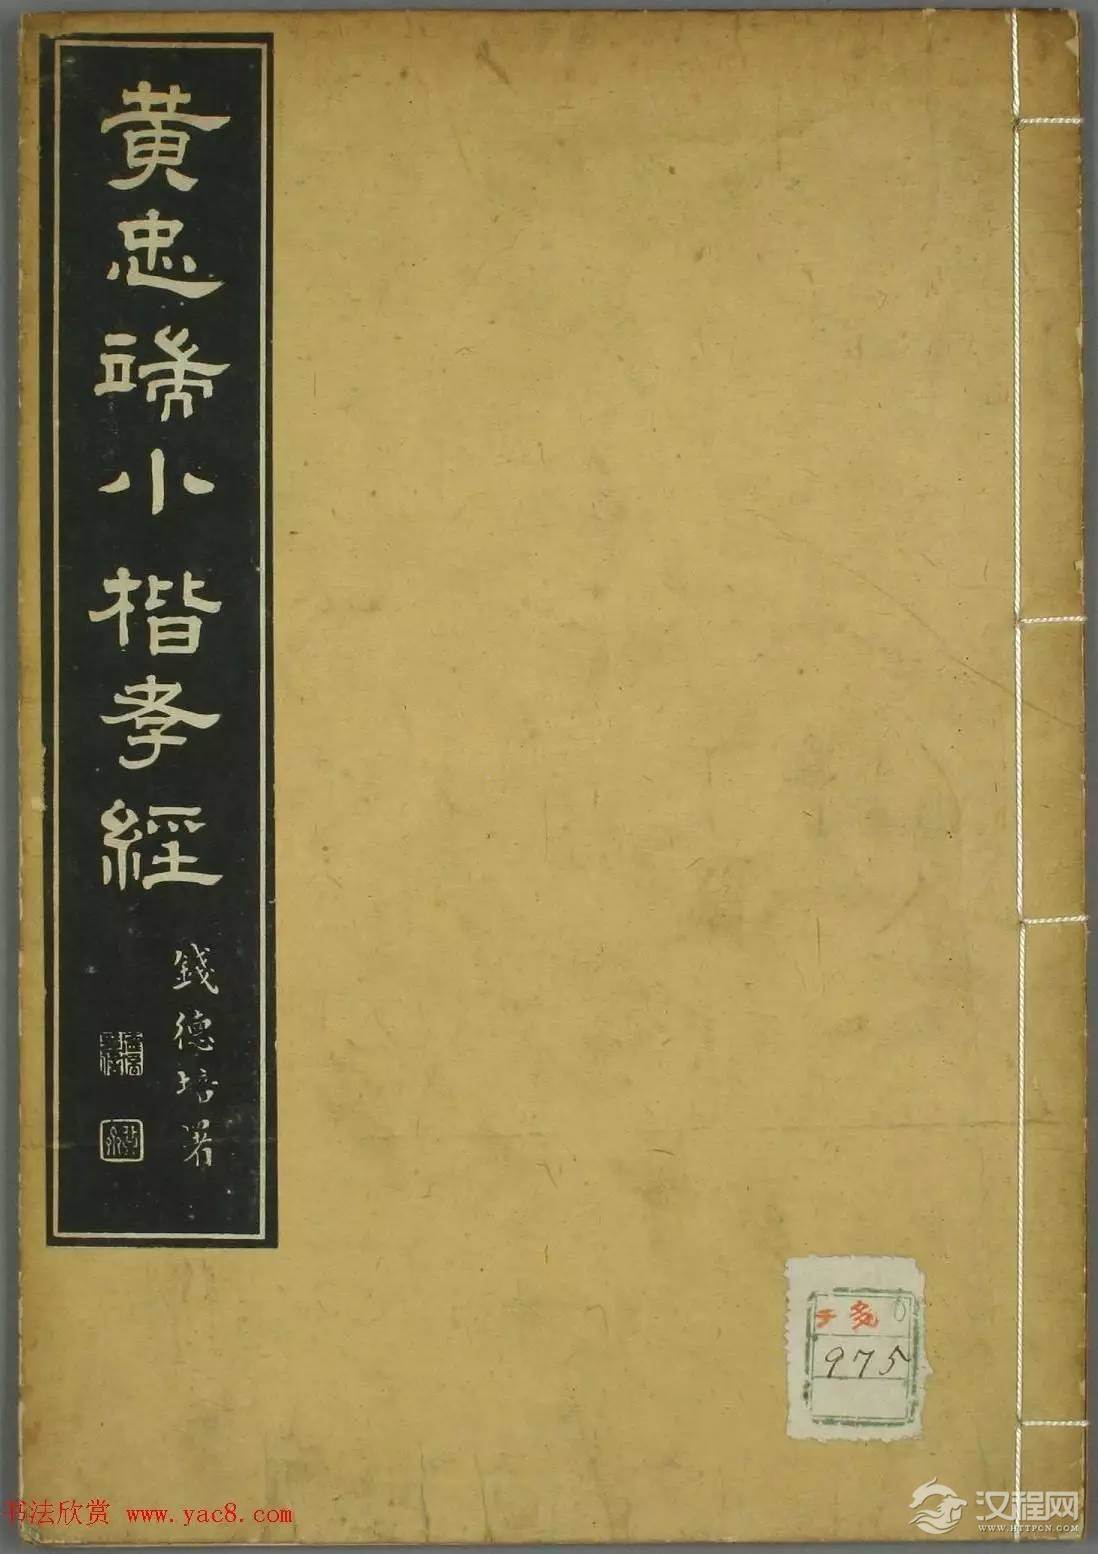 黄忠端小楷孝經
錢德培署
多
975
书法欣赏 www.yac8.com
汉程网
WWW.HTTPCN.COM